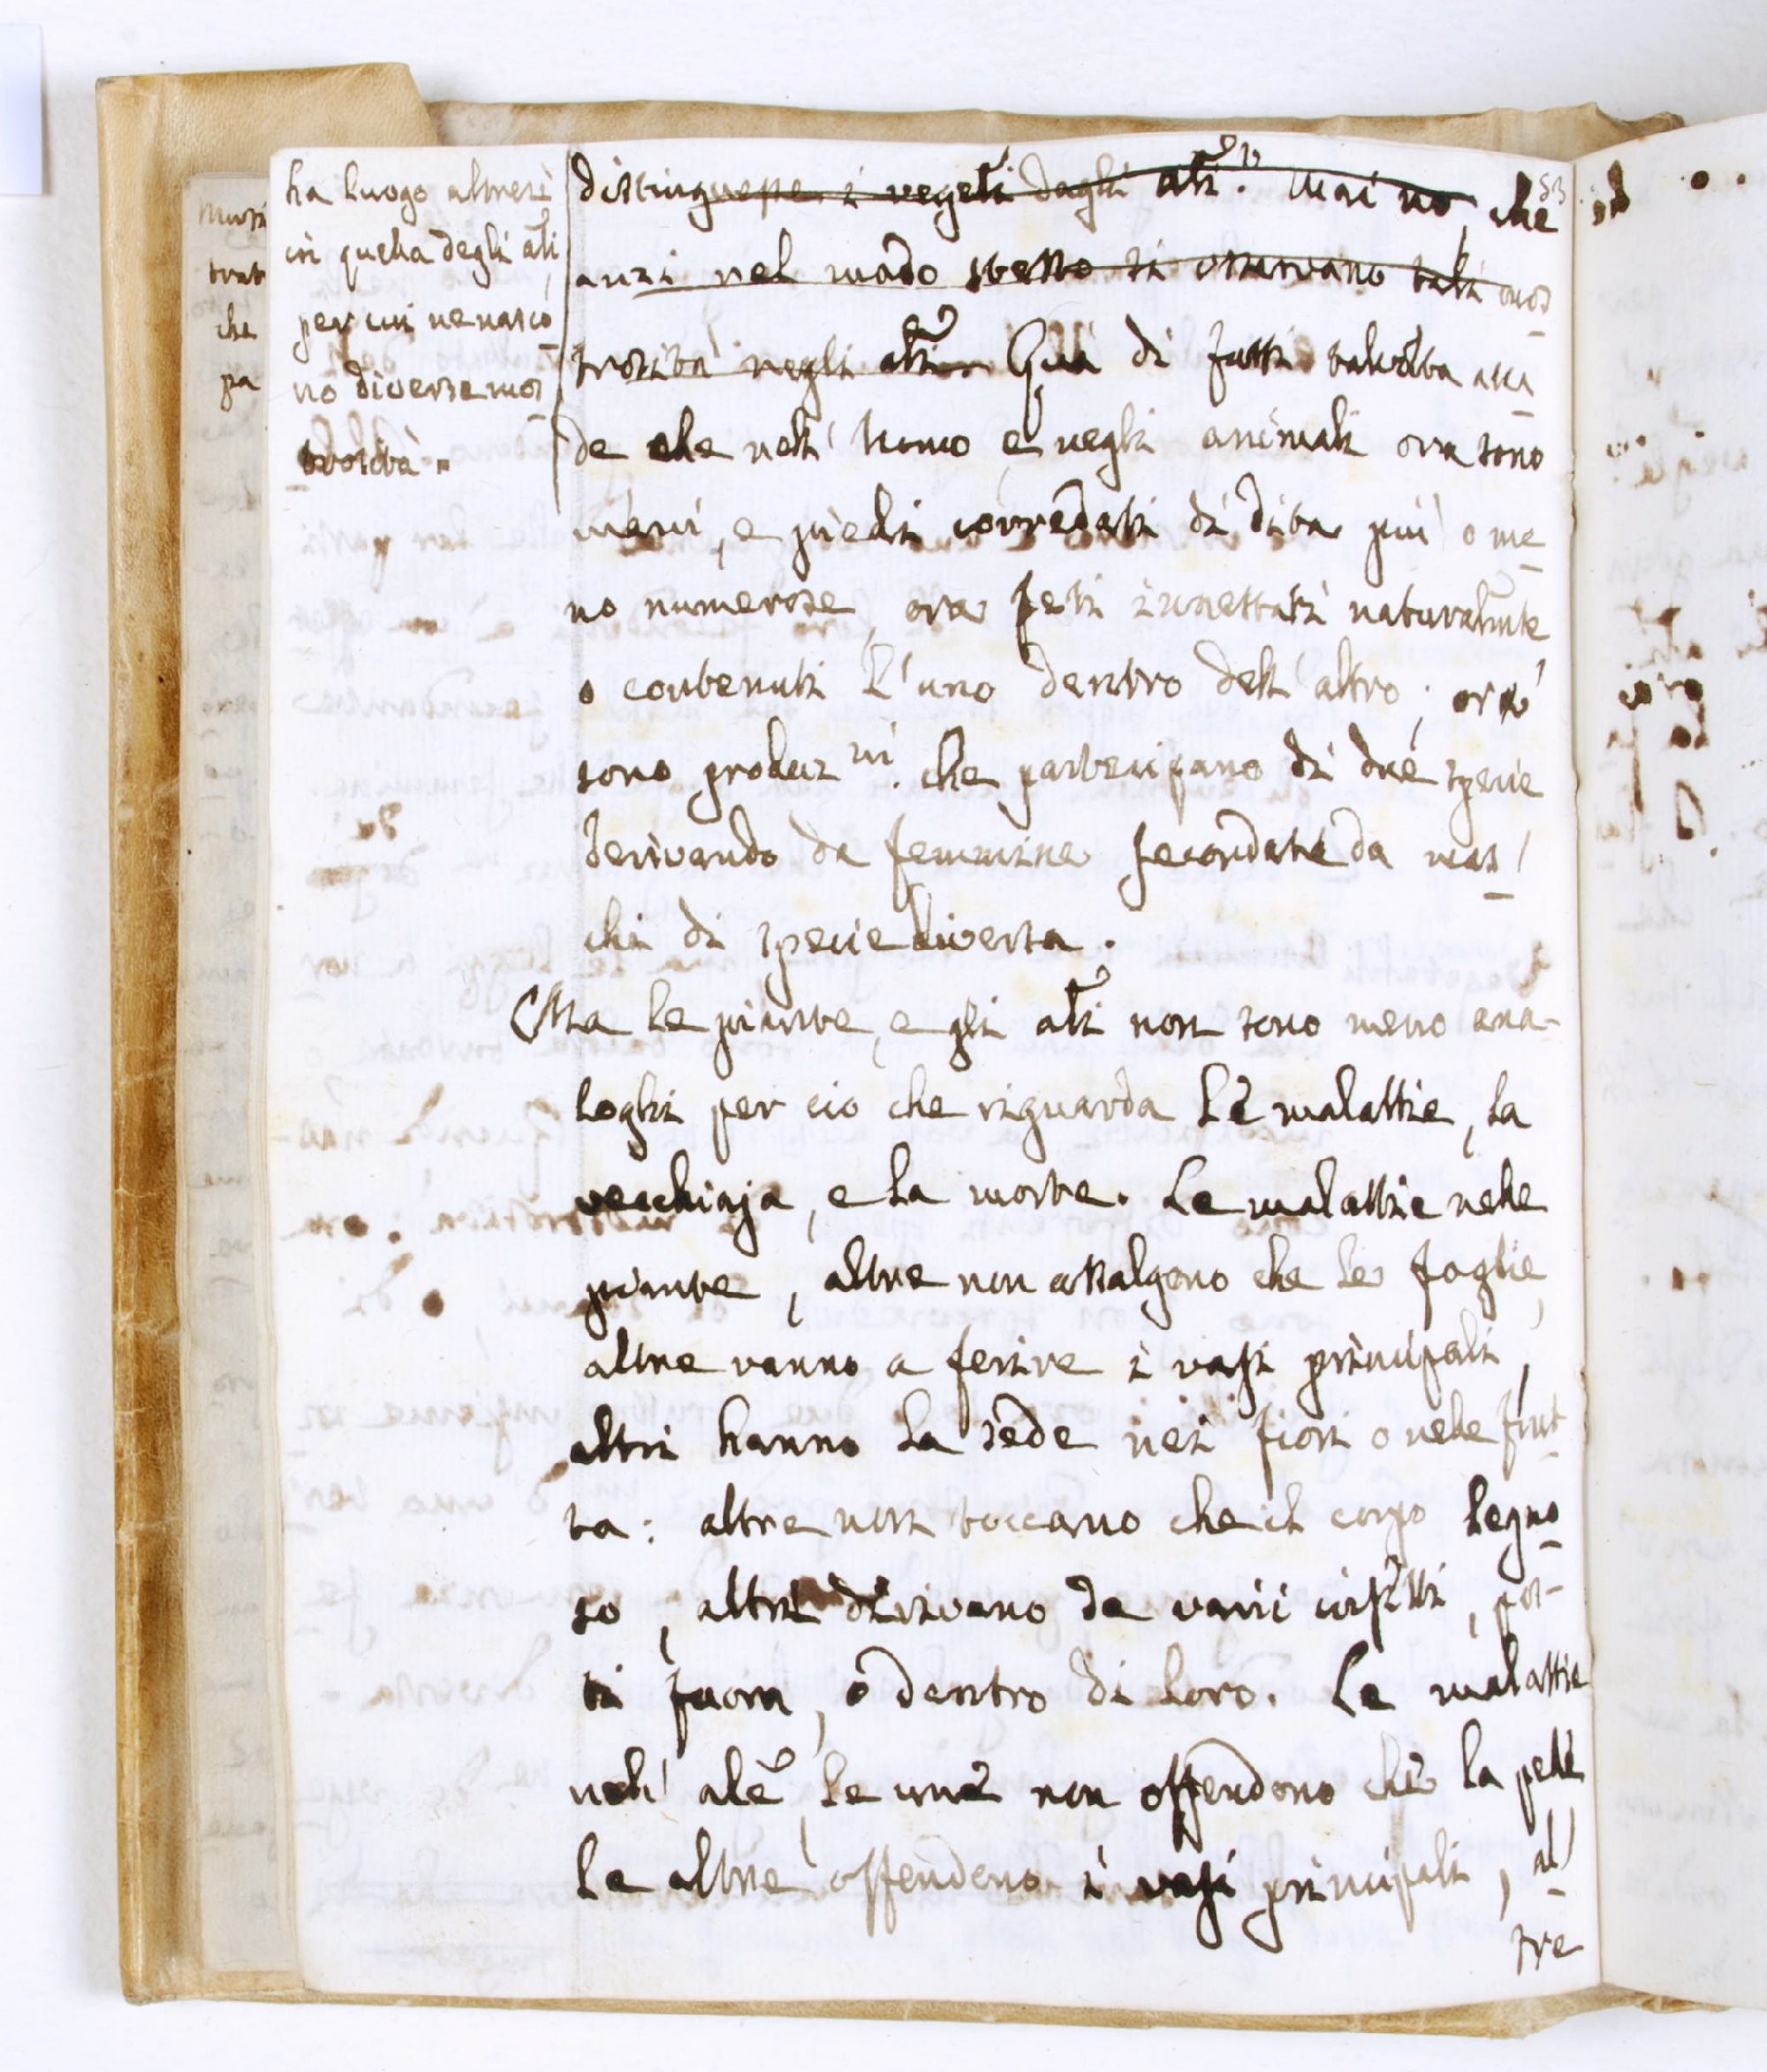 ha luogo altresì
in quella degli ali
per cui ne nasco
no diverse mos
truosità
distinguesse i vegeti dagli ali. Mai no, che
anzi nel modo stesso si osservano tali mos
truosità negli ali. Qua di fatti talvolta acca
de che nell' Uomo e negli animali ora sono
mani, e piedi corredati di dita più o me
no numerose, ora feti innestati naturalmte
o contenuti l'uno dentro dell' altro; ora
sono produzni che partecipano di due specie
derivando da femmine fecondate da mas
chi di specie diversa.
Ma le piante, e gli ali non sono meno ana-
loghi per ciò che riguarda le malattie, la
vecchiaja, e la morte. Le malattie nelle
piante, altre non assalgono che le foglie,
altre vanno a ferire i vasi principali,
altri hanno la sede nei fiori o nelle frut
ta: altre non toccano che il corpo legno
so, altri dirivano da varii insetti, pos-
ti fuori, o dentro di loro. Le malattie
nell' ale, le une non offendono che la pelle
le altre offendono i vasi principali, al
tre